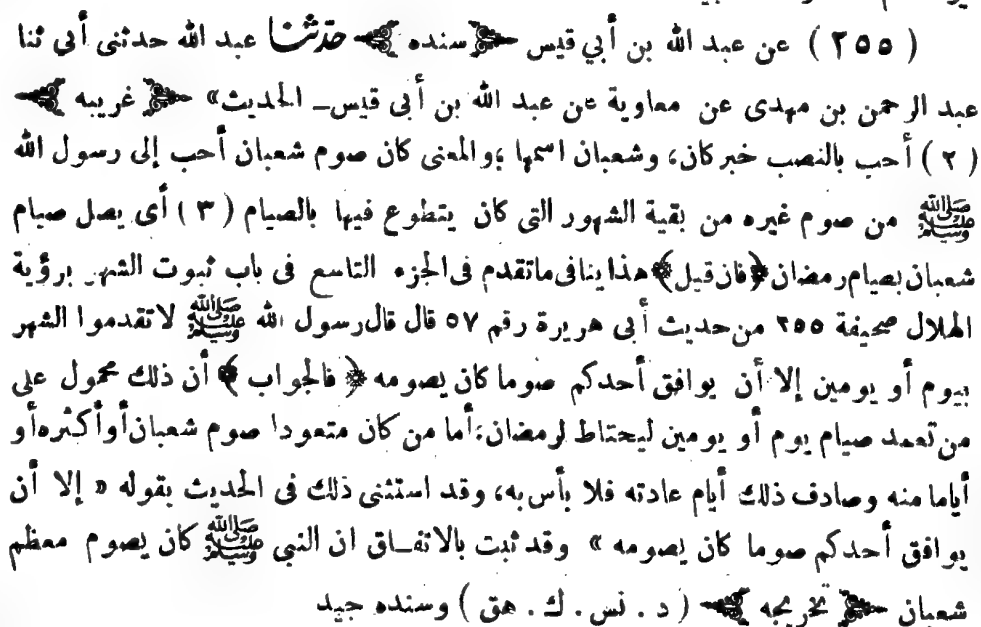 (٢٥٥) عن عبد الله بن أبي قيس ﴿سنده﴾ حدثنا عبد الله حدثنى أبى ثنا
عبد الرحمن بن مهدى عن معاوية عن عبد الله بن أبى قيس ــ الحديث» ﴿غريبه﴾
(٢) أحب بالنصب خبر كان، وشعبان اسمها ؛والمعنى كان صوم شعبان أحب إلى رسول الله
ﷺ من صوم غيره من بقية الشهور التى كان يتطوع فيها بالصيام (٣) أى يصل صيام
شعبان بصيام رمضان ﴿فان قيل﴾ هذا ينافى ما تقدم فى الجزء التاسع فى باب ثبوت الشهر برؤية
الهلال صحيفة ٢٥٥ من حديث أبى هريرة رقم ٥٧ قال قال رسول الله ﷺ لا تقدموا الشهر
بيوم أو يومين إلا أن يوافق أحدكم صوما كان يصومه ﴿فالجواب﴾ أن ذلك محمول على
من تعمد صيام يوم أو يومين ليحتاط لرمضان؛ أما من كان متعودا صوم شعبان أو أكثره أو
أياما منه وصادف ذلك أيام عادته فلا بأس به، وقد استثنى ذلك فى الحديث بقوله « إلا أن
يوافق أحدكم صوما كان يصومه » وقد ثبت بالاتفــاق ان النبي ﷺ كان يصوم معظم
شعبان ﴿تخريجه﴾ (د . نس . ك . هق) وسنده جيد